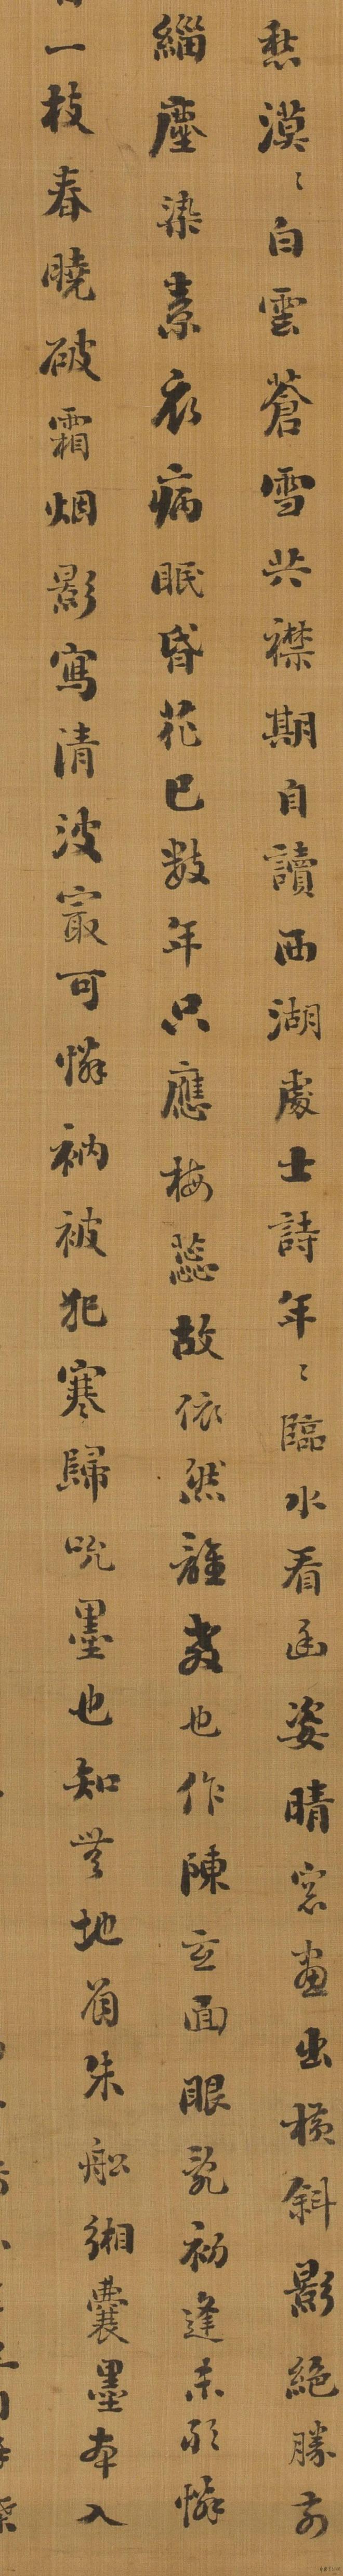 愁漠〻白雲蒼雪共襟期自讀西湖處士詩年〻臨水看幽姿晴窓畫出橫斜影絕勝前
緇塵染素衣病眠昏花已數年只應梅蕊故依然誰教也作陳玄面眼亂初逢未敢憐
一枝春曉破霜烟影寫清波最可憐衲被犯寒歸吮墨也知無地著朱鉛緗囊墨本入